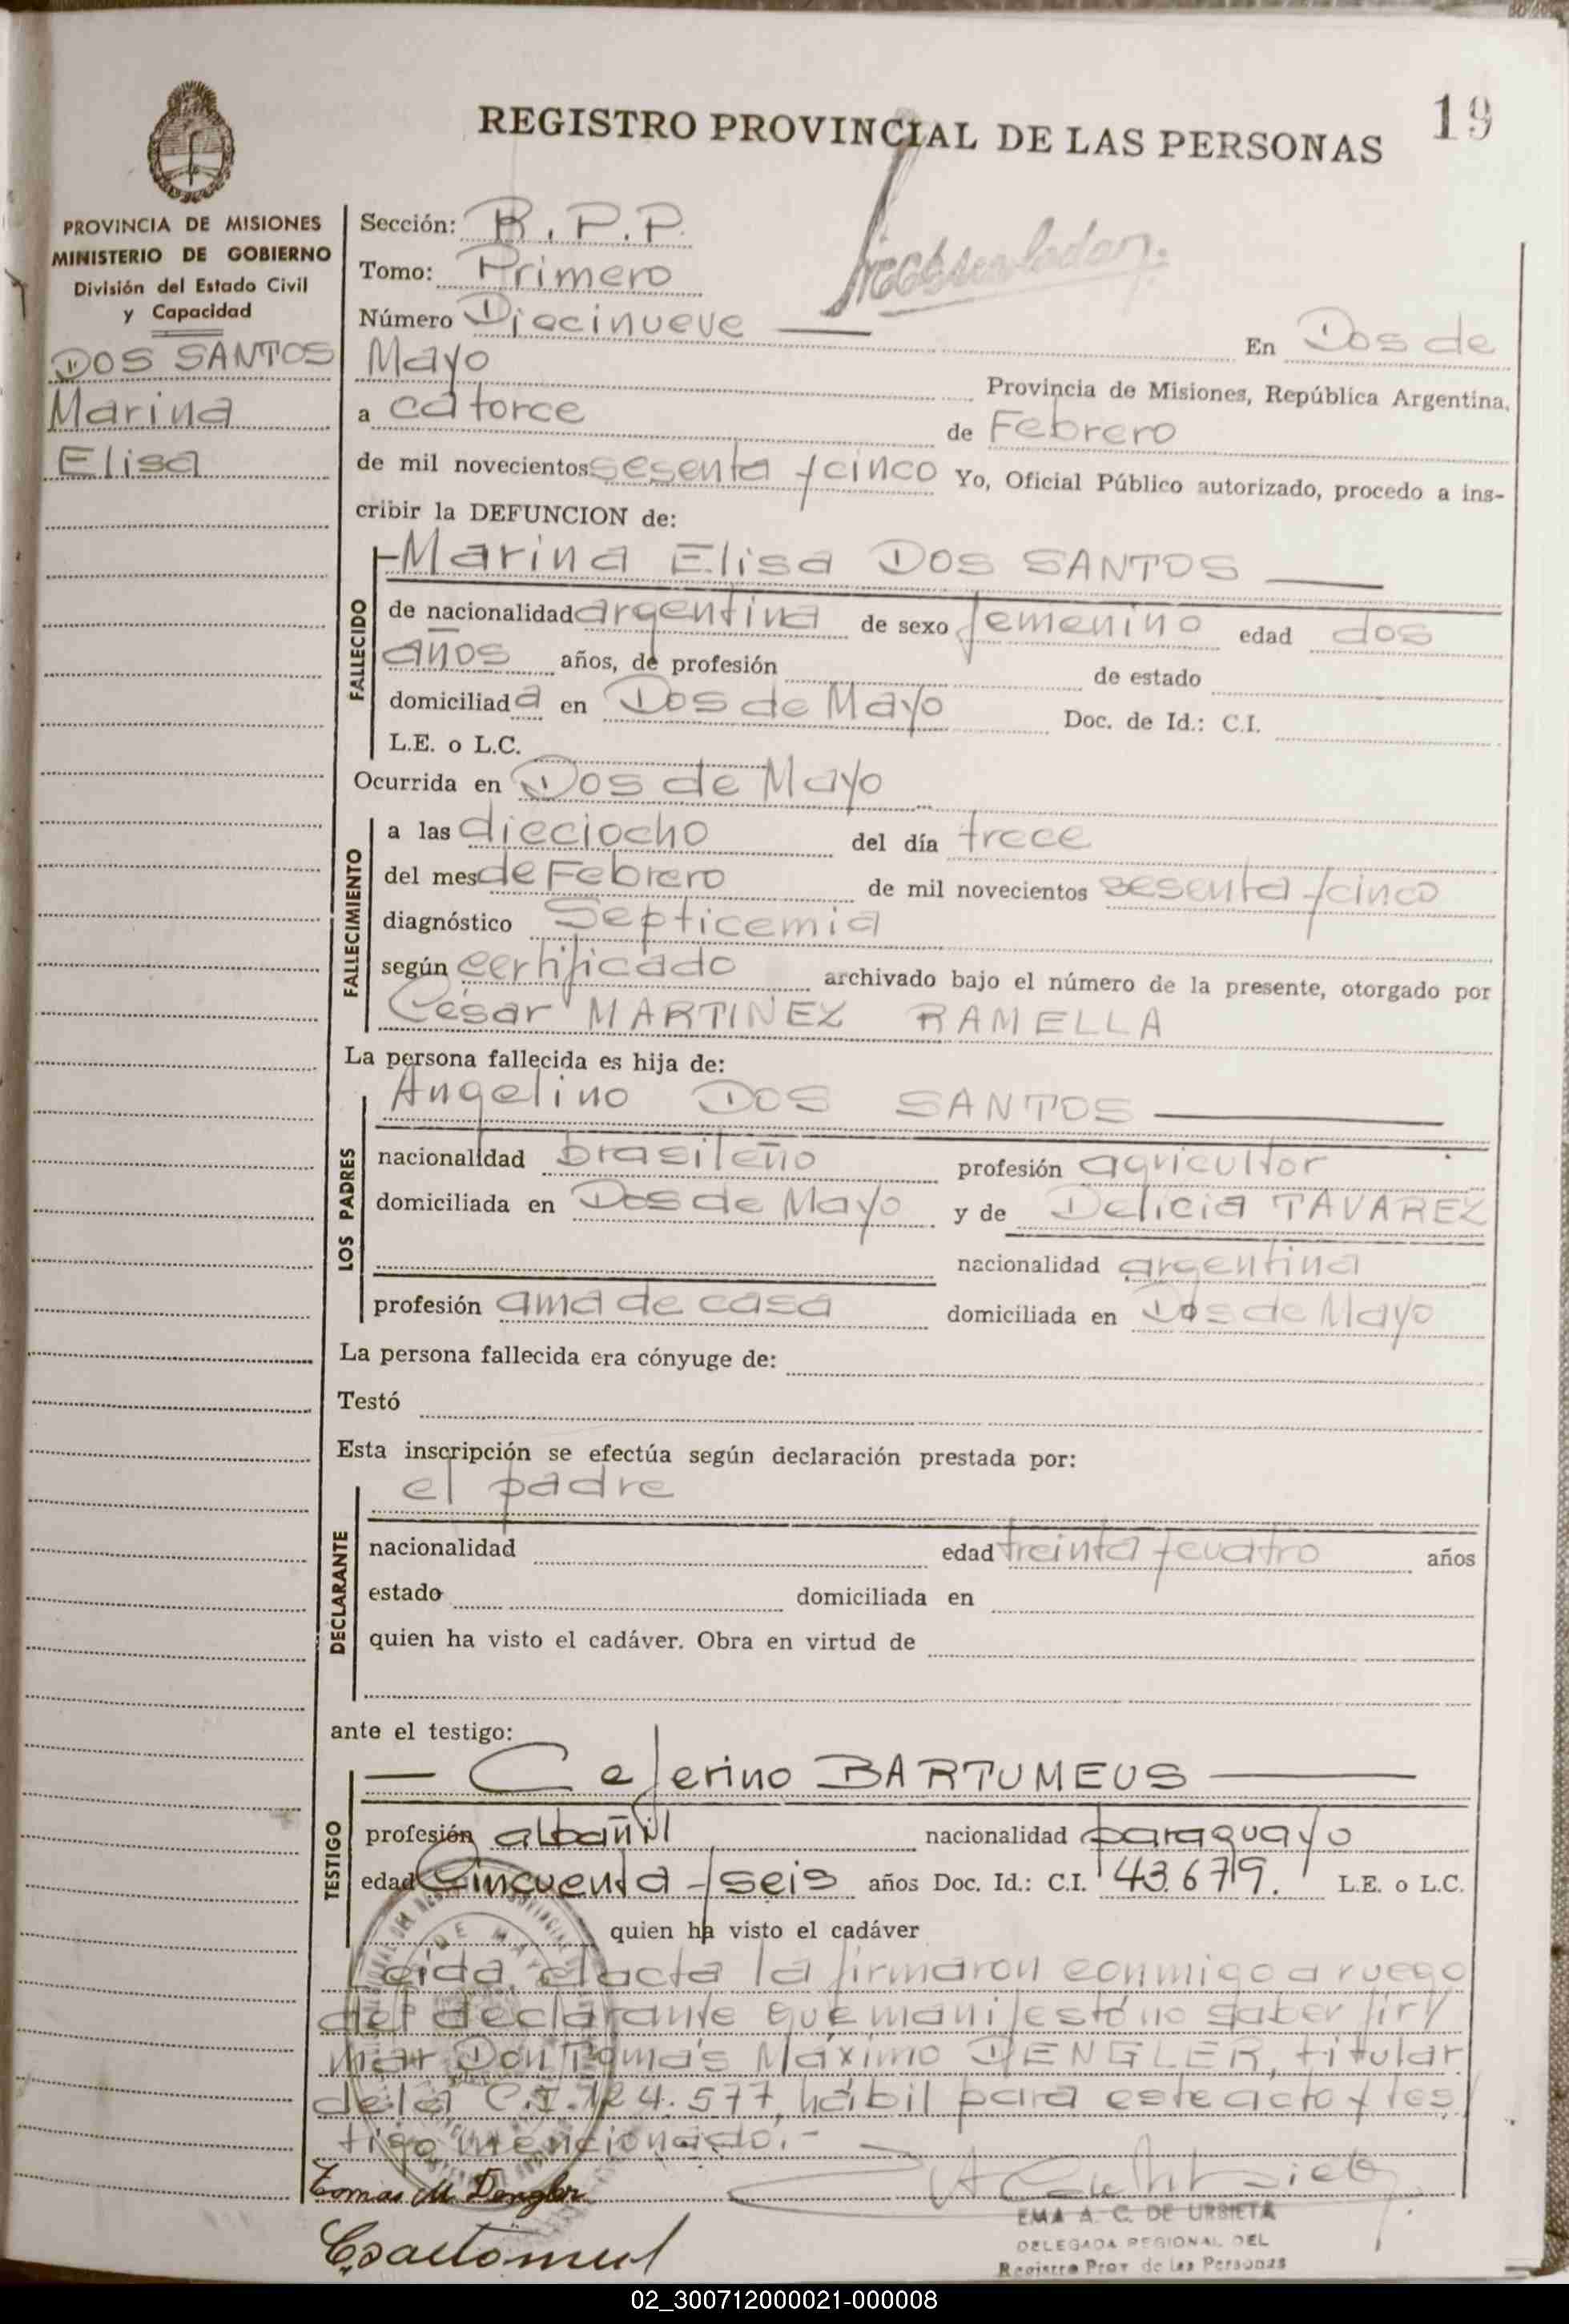 19
REGISTRO PROVINCIAL DE LAS PERSONAS
PROVINCIA DE MISIONES
MINISTERIO DE GOBIERNO
División del Estado Civil
y Capacidad
DOS SANTOS
Marina
Elisa
Sección: R.P.P.
Tomo: Primero
Número Diecinueve
En Dos de
Mayo Provincia de Misiones, República Argentina,
a catorce de Febrero
de mil novecientos sesenta y cinco Yo, Oficial Público autorizado, procedo a ins-
cribir la DEFUNCION de:
FALLECIDO
Marina Elisa DOS SANTOS
de nacionalidad argentina de sexo femenino edad dos
años años, de profesión de estado
domiciliada en Dos de Mayo Doc. de Id.: C.I.
L.E. o L.C.
Ocurrida en Dos de Mayo
FALLECIMIENTO
a las dieciocho del día trece
del mes de Febrero de mil novecientos sesenta y cinco
diagnóstico Septicemia
según certificado archivado bajo el número de la presente, otorgado por
César MARTINEZ RAMELLA
La persona fallecida es hija de:
LOS PADRES
Angelino DOS SANTOS
nacionalidad brasileño profesión agricultor
domiciliada en Dos de Mayo y de Delicia TAVAREZ
nacionalidad argentina
profesión ama de casa domiciliada en Dos de Mayo
La persona fallecida era cónyuge de:
Testó
Esta inscripción se efectúa según declaración prestada por:
DECLARANTE
el padre
nacionalidad edad treinta y cuatro años
estado domiciliada en
quien ha visto el cadáver. Obra en virtud de
ante el testigo:
TESTIGO
Ceferino BARTUMEUS
profesión albañil nacionalidad paraguayo
edad cincuenta y seis años Doc. Id.: C.I. 43.679. L.E. o L.C.
quien ha visto el cadáver
Leida el acta la firmaron conmigo a ruego
del declarante que manifestó no saber fir/
mar Don Tomás Máximo DENGLER, titular
de la C.I. 124.577, hábil para este acto y tes
tigo mencionado.-
Tomas M Dengler
EMA A. C. DE URBIETA
DELEGADA REGIONAL DEL
Registro Prov de las Personas
02_300712000021-000008